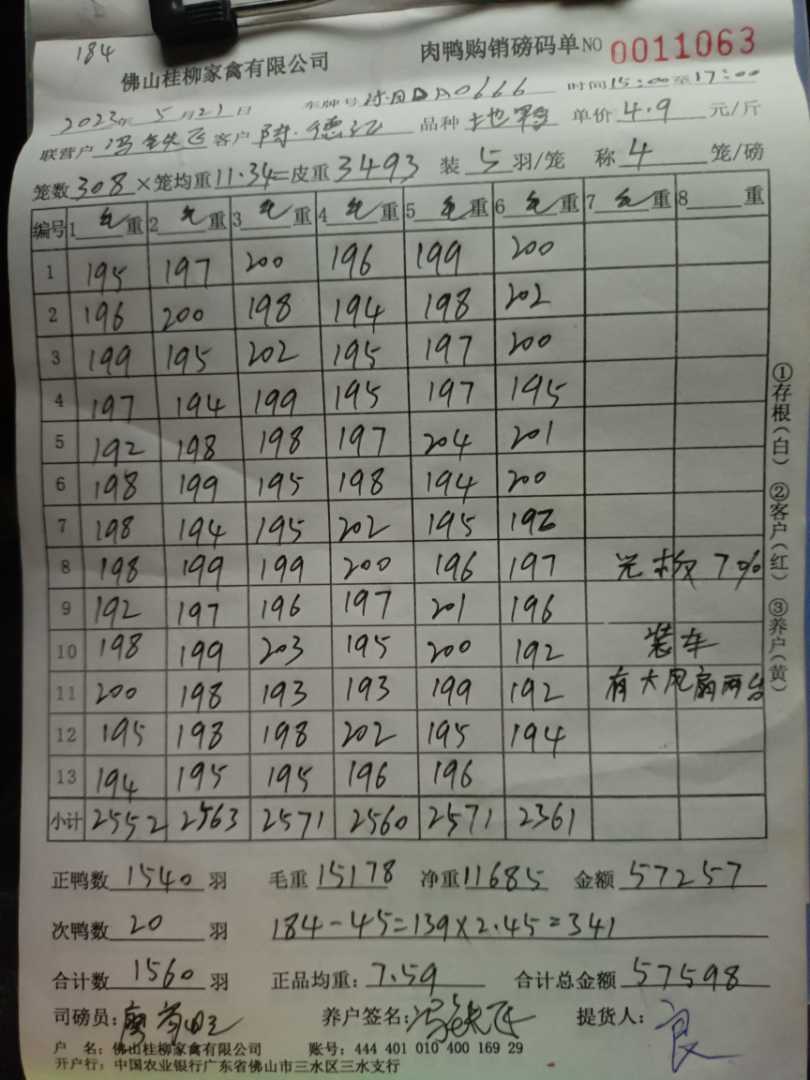 184
佛山桂柳家禽有限公司 肉鸭购销磅码单 NO 0011063
2023年 5月21日 车牌号 A0666 时间15:00至17:00
联营户 冯铁飞 客户 陈德江 品种 地鸭 单价 4.9 元/斤
笼数 308 ×笼均重 11.34=皮重 3493 装 5 羽/笼 称 4 笼/磅
编号 1 毛重 2 毛重 3 毛重 4 毛重 5 毛重 6 毛重 7 毛重 8 重
1 195 197 200 196 199 200
2 196 200 198 194 198 202
3 199 195 202 195 197 200
4 197 194 199 195 197 195
5 192 198 198 197 204 201
6 198 199 195 198 194 200
7 198 194 195 202 195 192
8 198 199 199 200 196 197 7%
9 192 197 196 197 201 196
10 198 199 203 195 200 192 装车
11 200 198 193 193 199 192 有大风扇两台
12 195 198 198 202 195 194
13 194 195 195 196 196
小计 2552 2563 2571 2560 2571 2361
正鸭数 1540 羽 毛重 15178 净重 11685 金额 57257
次鸭数 20 羽 184-45=139×2.45=341
合计数 1560 羽 正品均重: 7.59 合计总金额 57598
司磅员: 养户签名: 冯铁飞 提货人: 良
户 名: 佛山桂柳家禽有限公司 账号: 444 401 010 400 169 29
开户行: 中国农业银行广东省佛山市三水区三水支行
①存根(白) ②客户(红) ③养户(黄)